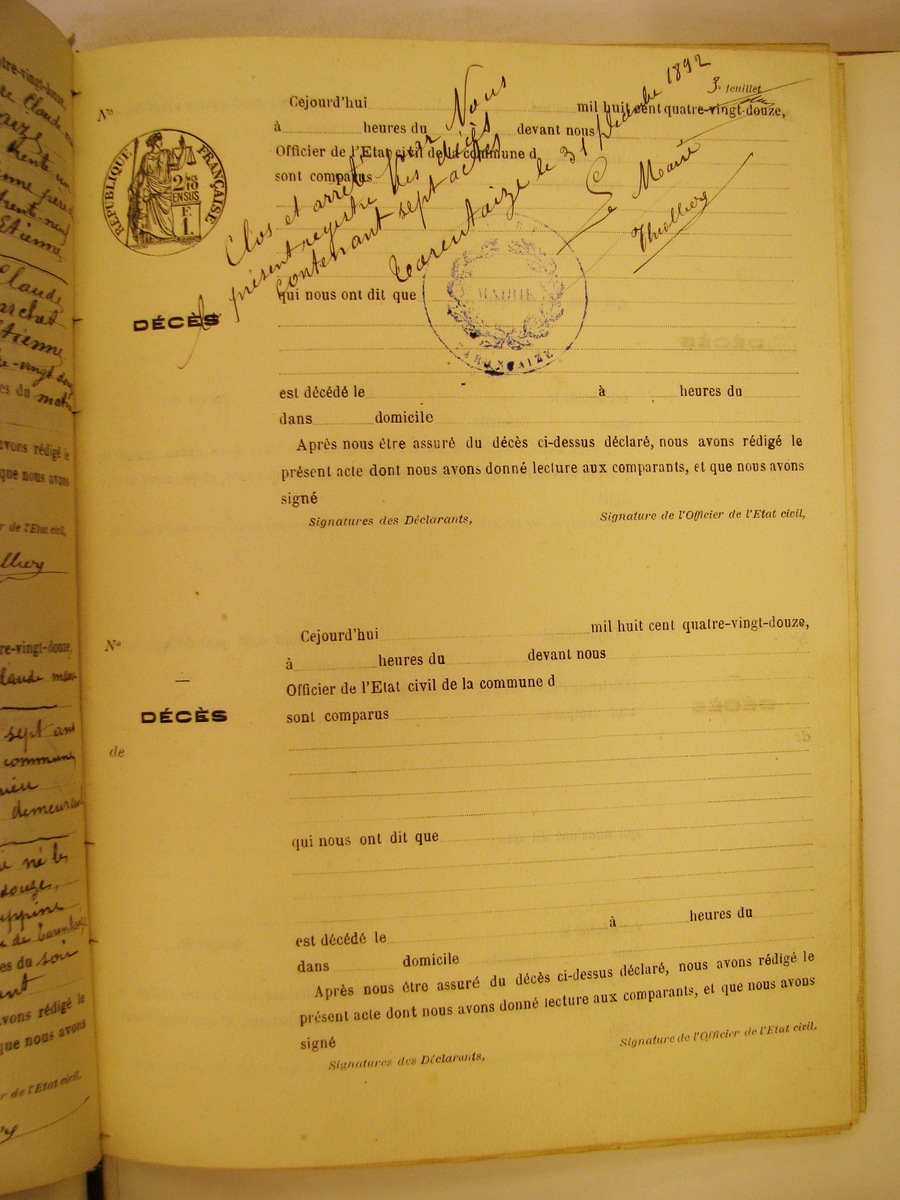 3e feuillet
No
Cejourd'hui mil huit cent quatre-vingt-douze,
à heures du devant nous
Officier de l'Etat civil de la commune d
sont comparus
RÉPUBLIQUE FRANÇAISE
2 10
EN SUS
F.
1.
Clos et arrêté par Nous
le présent registre des décès
contenant sept actes
Tarentaize le 31 décembre 1892
Le Maire
DÉCÈS
MAIRIE
TARENTAIZE
qui nous ont dit que
est décédé le à heures du
dans domicile
Après nous être assuré du décès ci-dessus déclaré, nous avons rédigé le
présent acte dont nous avons donné lecture aux comparants, et que nous avons
signé
Signatures des Déclarants, Signature de l'Officier de l'Etat civil,
No
Cejourd'hui mil huit cent quatre-vingt-douze,
à heures du devant nous
Officier de l'Etat civil de la commune d
DÉCÈS
sont comparus
de
qui nous ont dit que
est décédé le à heures du
dans domicile
Après nous être assuré du décès ci-dessus déclaré, nous avons rédigé le
présent acte dont nous avons donné lecture aux comparants, et que nous avons
signé
Signatures des Déclarants, Signature de l'Officier de l'Etat civil,